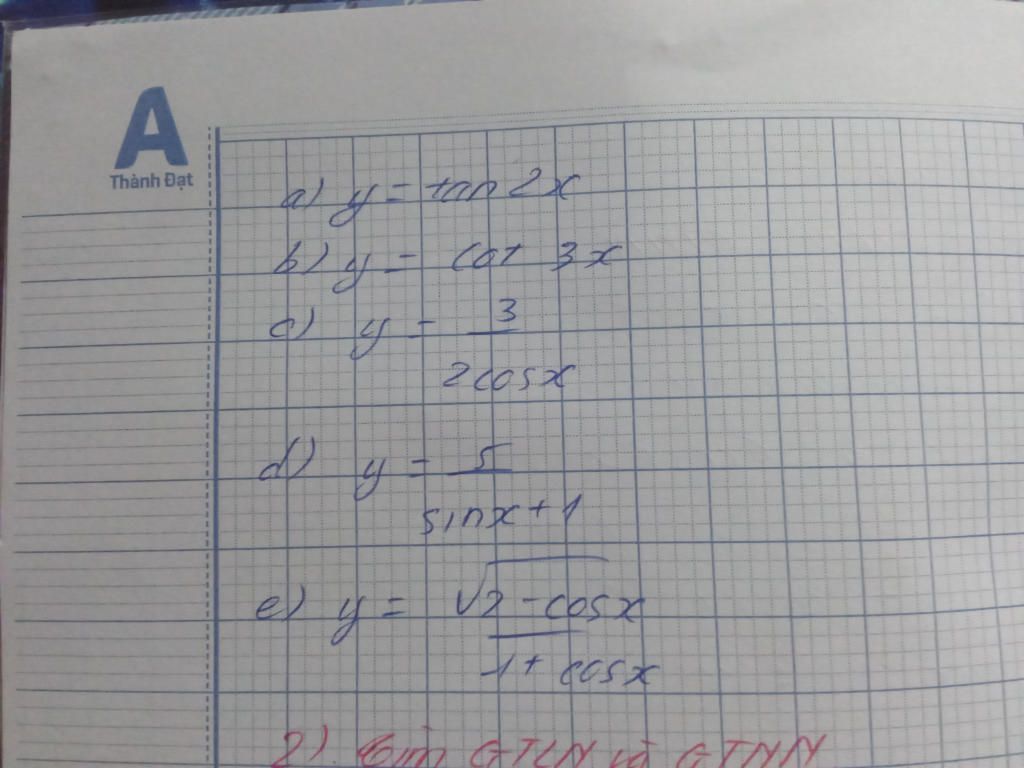 A
Thành Đạt
a) y = tan 2x
b) y = cot 3x
c) y = 3
2cosx
d) y = 5
sinx + 1
e) y = √2 - cosx
1 + cosx
2). Tìm GTLN và GTNN